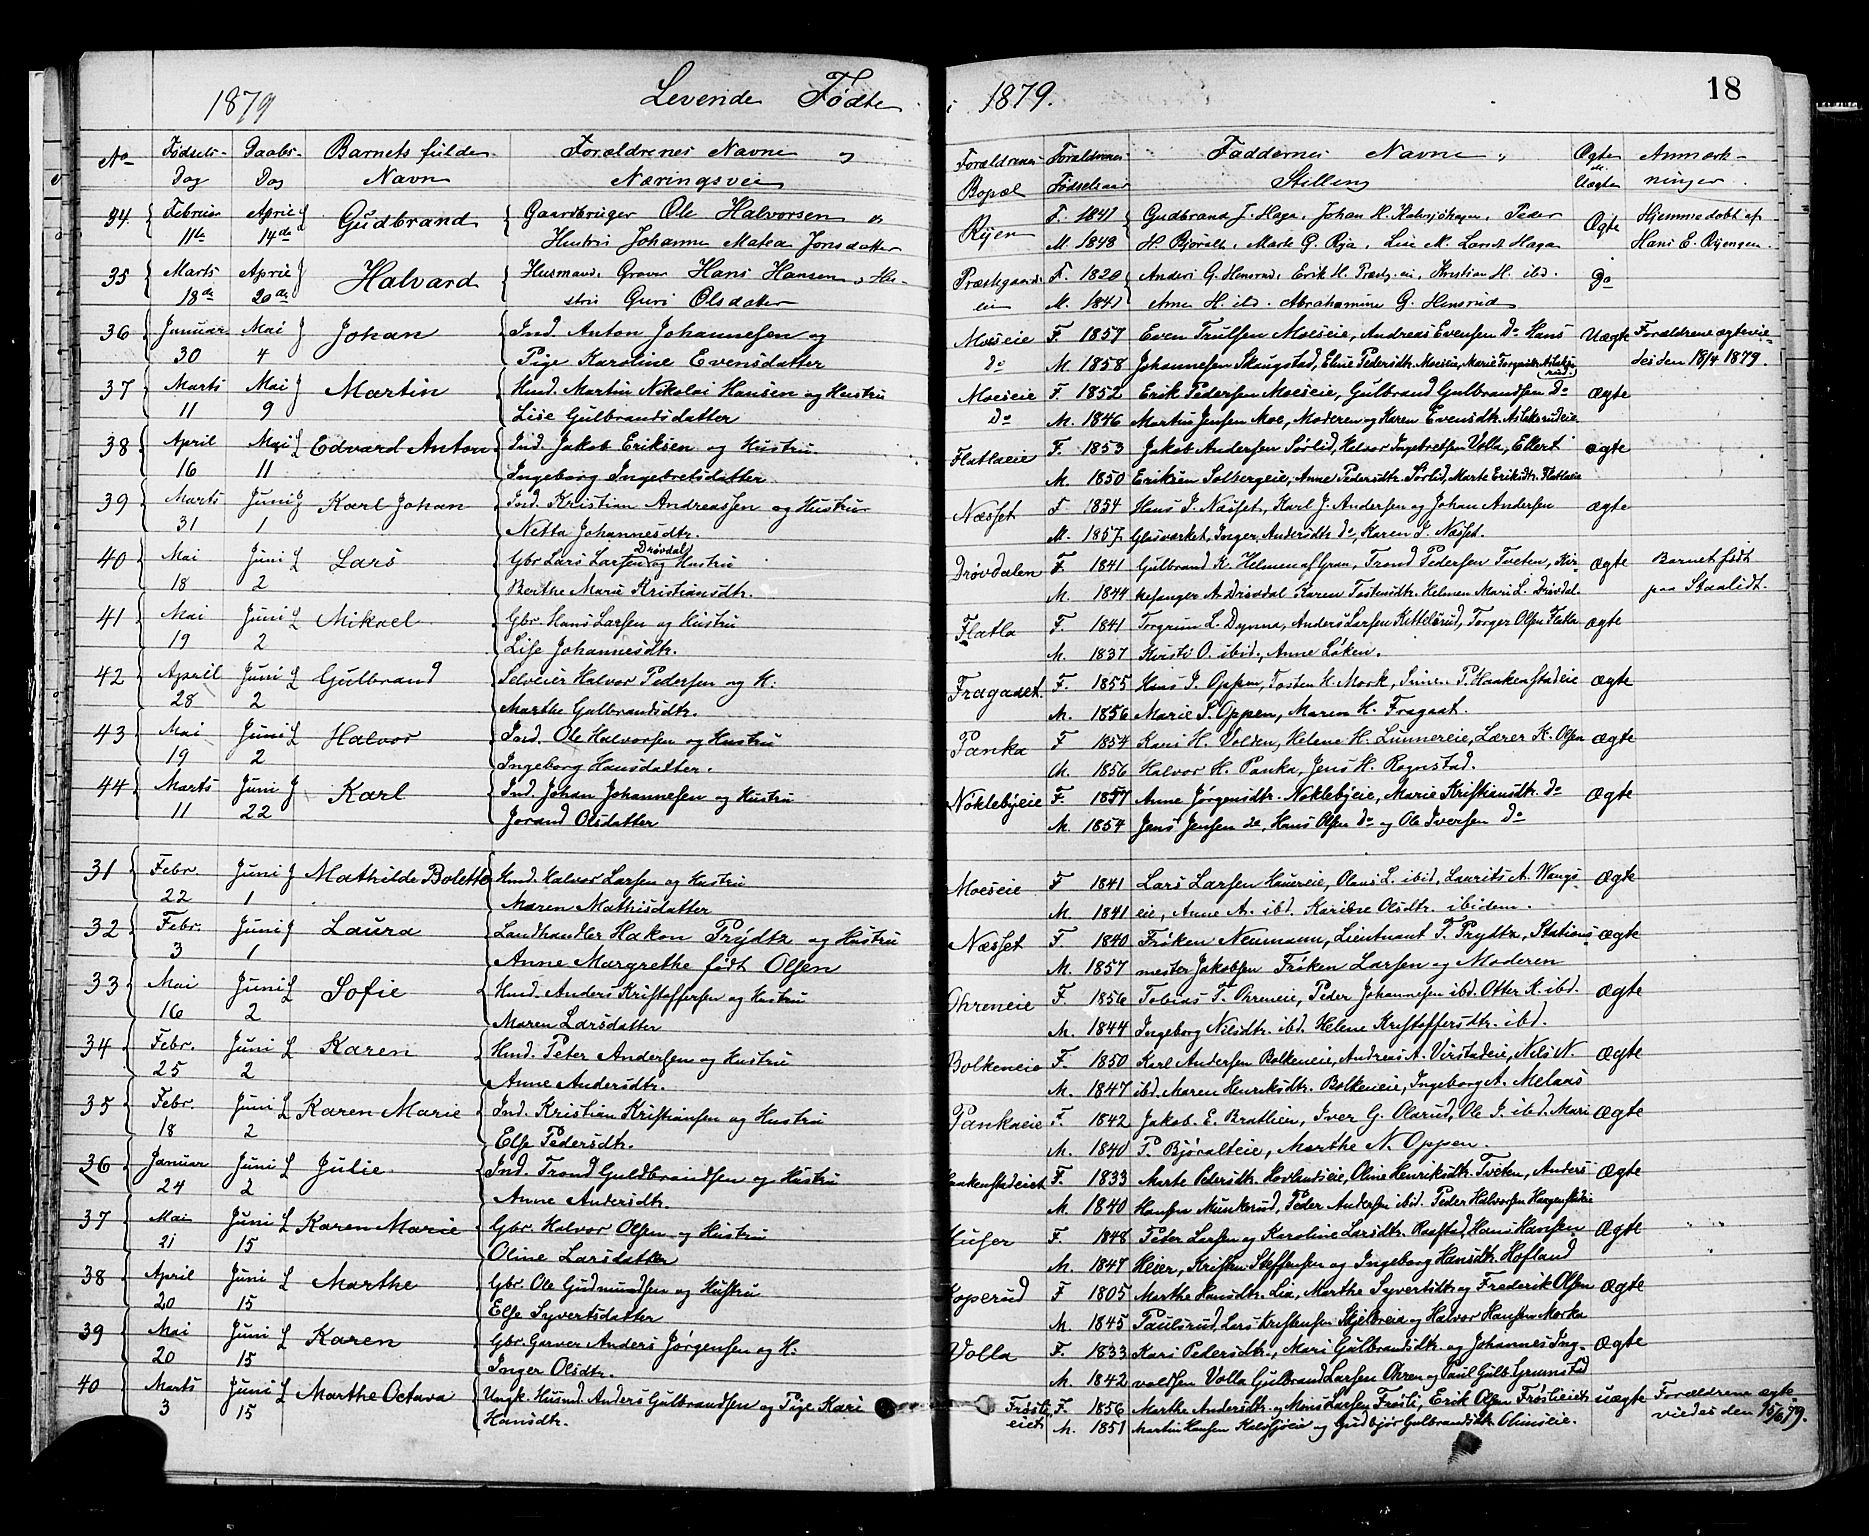 1879 Levende Fødte i 1879. 18
No Fødsels- Daabs- Barnets fulde Forældrenes Navne og Forældrenes Forældrenes Faddernes Navne, Ægte Anmærk-
Dag Dag Navn Næringsvei Bopæl Fødselsaar Stilling Uægte ninger.
34. Februar April Gudbrand Gaardbruger Ole Halvorsen og F. 1841 Gudbrand J. Haga, Johan H. Peder Ægte Hjemmedøbt af
11te 14de Hustru Johanne Matea Jonsdatter Ryen M. 1848 H. Bjørali, Marte G. Rya, Lise M. Haga Hans E. Ryengen.
35 Marts April Halvard Husmand, Hans Hansen, Hu- Præstgaards- F. 1820 Anders G. Hensrud, Erik H. Præstg. ei, Kristian H. ibd. Do
18de 20de stru Guri Olsdatter eie M. 1841 Arne H. ibd. Abrahamine G. Hensrud
36 Januar Mai Johan Ind. Anton Johannesen og Moeseie F. 1857 Even Trulsen Moeseie, Andreas Evensen Do Hans Uægte Forældrene ægtevie-
30 4 Pige Karoline Evensdatter do M. 1858 Johannesen Skaugstad, Eline Pedersdtr. Moeseie, Marie des den 18/4 1879.
37 Marts Mai Martin Hmd. Martin Nikolai Hansen og Hustru Moeseie F. 1852 Erik Pedersen Moeseie, Gulbrand Gulbrandsen Do ægte
11 9 Lise Gulbrandsdatter Do M. 1846 Martus Jensen Moe, Moderen og Karen Evensdtr. Aslaksrudeie
38 April Mai Edvard Anton Ind. Jakob Eriksen og Hustru Flatlaeie F. 1853 Jakob Andersen Sørlid, Halvor Ingebretsen Volla, Ellert ægte
16 11 Ingeborg Ingebretsdatter M. 1850 Eriksen Solbergeie, Anne Pedersdtr. Sørlid, Marte Eriksdtr. Flatlaeie
39 Marts Juni Karl Johan Ind. Kristian Andreassen og Hustru Næsset F 1854 Hans J. Næsset, Karl J. Andersen og Johan Andersen ægte
31 1 Netta Johannesdtr. M. 1857 Glasværket, Inger Andersdtr. do Karen J. Næsset.
40 Mai Juni Lars Gbr. Lars Larsen Drøvdal og Hustru Drøvdalen F. 1841 Gulbrand K. Helmen af Gran, Trond Pedersen Tveten, Kir- ægte Barnet født
18 2 Berthe Marie Kristiansdtr. M. 1844 kesanger A. Drøvdal Karen Tostensdtr. Helmen Mari L. Drøvdal paa Staalidt.
41 Mai Juni Mikael Gbr. Hans Larsen og Hustru Flatla F 1841 Torgrim L. Dynna, Anders Larsen Kittelsrud, Torger Olsen Flatla ægte
19 2 Lise Johannesdtr. M. 1837 Kristi O. ibid., Anne Løken.
42 April Juni Gulbrand Selveier Halvor Pedersen og H. Fragaaet F. 1855 Hans J. Oppen, Tosten H. Mork, Simen P. Haakenstadeie ægte
28 2 Marthe Gulbrandsdtr. M. 1856 Marie S. Oppen, Maren H. Fragaat.
43 Mai Juni Halvor Ind. Ole Halvorsen og Hustru Panka F 1854 Kari H. Volden, Helene H. Lunnereie, Lærer K. Olsen ægte
19 2 Ingeborg Hansdatter. M. 1856 Halvor H. Panka, Jens H. Rognstad.
44 Marts Juni Karl Ind. Johan Johannesen og Hustru Nøklebyeie F. 1857 Anne Jørgensdtr. Nøklebyeie, Marie Kristiansdtr. do ægte
11 22 Jorand Olsdatter M. 1854 Jens Jensen do, Hans Olsen do og Ole Iversen Do
31 Febr. Juni Mathilde Bolette Hmd. Halvor Larsen og Hustru Moeseie F 1841 Lars Larsen Hauereie, Olaus L. ibid, Laurits A. Wangs- ægte
22 1 Maren Mathisdatter M. 1841 eie, Anne A. ibd. Karine Olsdtr. ibidem.
32 Febr. Juni Laura Landhandler Hakon Prydtz og Hustru Næsset F 1840 Frøken Neumann, Lieutnant T. Prydtz, Stations- ægte
3 1 Anne Margrethe født Olsen M. 1857 mester Jakobsen Frøken Larsen og Moderen
33 Mai Juni Sofie Hmd. Anders Kristoffersen og Hustru Ohreneie F 1856 Tobias T. Ohreneie, Peder Johannesen ibd. Otter K. ibd. ægte
16 2 Maren Larsdatter M. 1844 Ingeborg Nilsdtr. ibd. Helene Kristoffersdtr. ibd.
34 Febr. Juni Karen Hmd. Peter Andersen og Hustru Bolkeneie F. 1850 Karl Andersen Bolkeneie, Andreas A. Virstadeie, Nils N. ægte
25 2 Anne Andersdtr. M. 1847 ibd. Maren Henriksdtr. Bolkeneie, Ingeborg A. Melaas
35 Febr. Juni Karen Marie Ind. Kristian Kristiansen og Hustru Pankaeie F. 1842 Jakob E. Bratlien, Iver G. Olarud, Ole J. ibd. Mari ægte
18 2 Else Pedersdtr. M. 1840 P. Bjøralteie, Marthe N. Oppen.
36 Januar Juni Julie Ind. Trond Guldbrandsen og Hustru Haakenstadeiet F. 1833 Marte Pedersdtr. Hovlandseie, Oline Henriksdtr. Tveten, Anders ægte
24 2 Anne Andersdtr. M. 1840 Hansen Munkerud, Peder Andersen ibid. Peder Halvorsen Haagenstadeie
37 Mai Juni Karen Marie Gbr. Halvor Olsen og Hustru Huser F. 1848 Peter Larsen og Karoline Larsdtr. Raastad, Hans Hansen ægte
21 15 Oline Larsdatter M. 1847 Heier, Kristen Steffensen og Ingeborg Hansdtr. Hofland
38 April Juni Marthe Gbr. Ole Gudmundsen og Hustru Koperud F 1805 Marthe Hansdtr. Lia, Marthe Syvertsdtr. og Frederik Olsen ægte
20 15 Else Syvertsdatter M. 1845 Paulsrud, Lars Kristensen Skjelbreia og Halvor Hansen Morka
39 Mai Juni Karen Gbr. Garver Anders Jørgensen og H. Volla F. 1833 Kari Pedersdtr., Mari Gulbrandsdtr. og Johannes Ing- ægte
20 15 Inger Olsdtr. M. 1842 valdsen Volla Gulbrand Larsen Ohren og Paul Gulb. Grumstad
40 Marts Juni Marthe Octava Ungk. Husmd. Anders Gulbrandsen og Pige Kari Frøsli- F. 1856 Marthe Andersdtr. og Mons Larsen Frøsli, Erik Olsen Frøslieiet uægte Forældrene ægte-
3 15 Hansdtr. eiet M. 1851 Martin Hansen Kalvsjøeie og Gudbjør Gulbrandsdtr. viedes den 15/6 79.